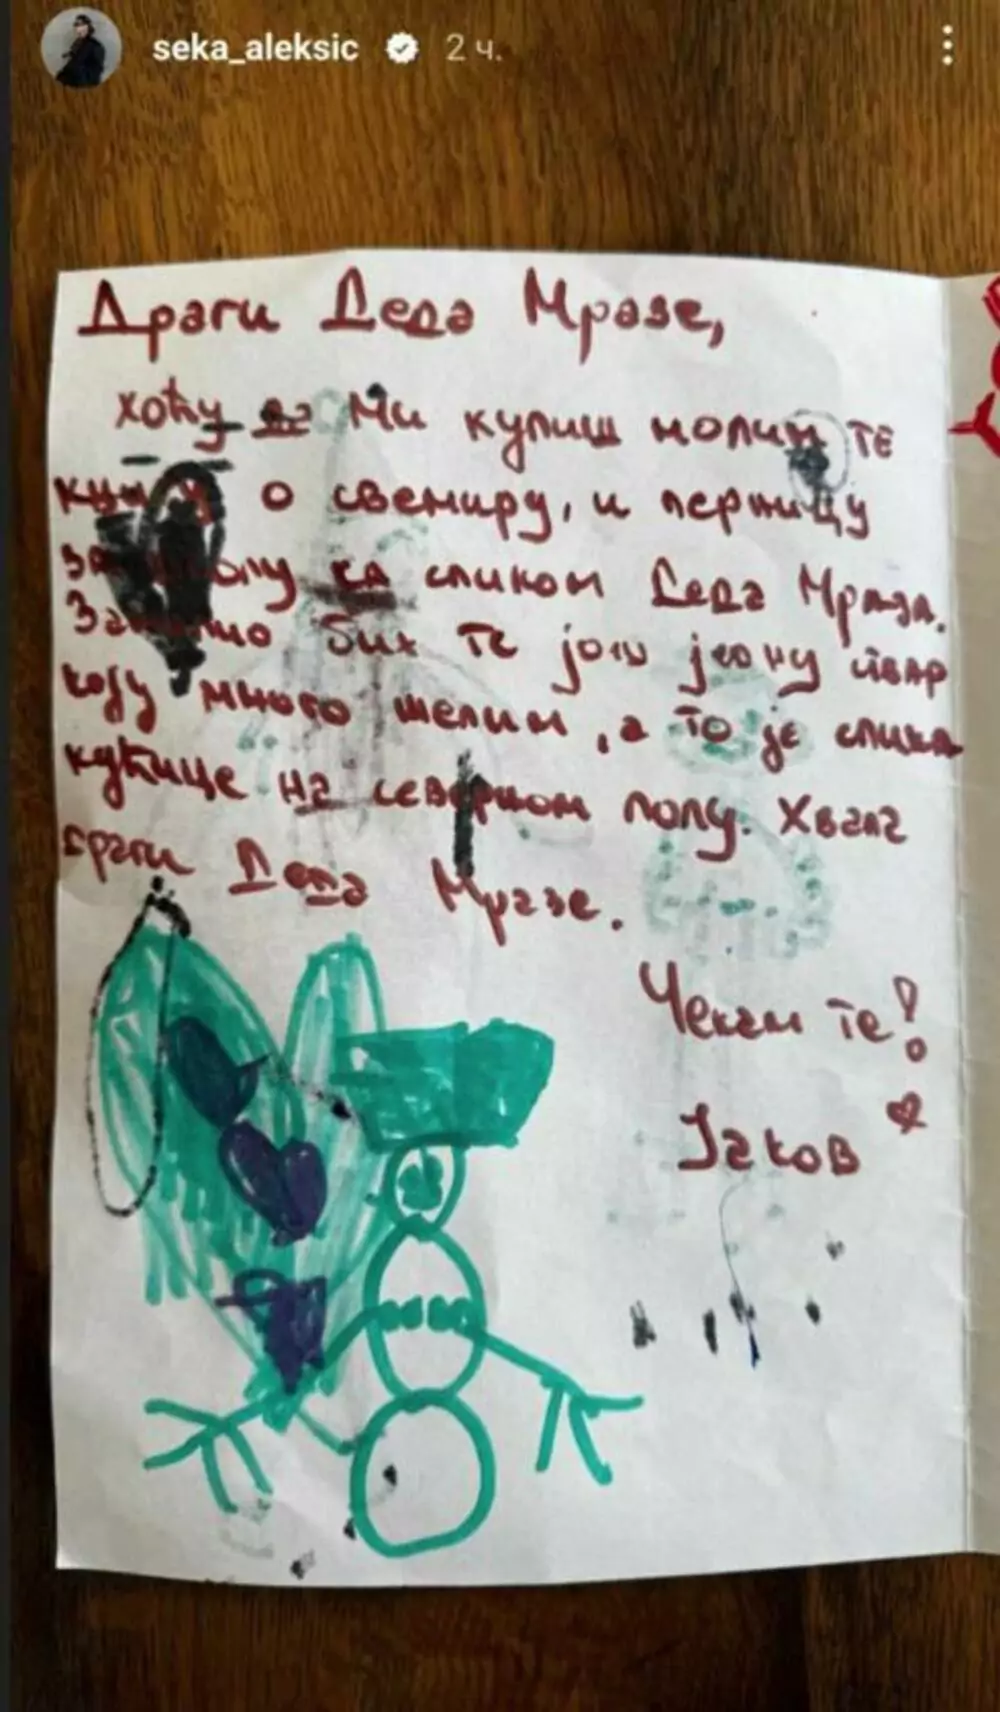 seka_aleksic 2 ч.
Драги Деда Мразе,
хоћу да Ми купиш молим ТЕ
о свемиру, и перницу
са сликом Деда Мраза.
бих те још једну ствар
коју много желим, а то је слика
кућице на северном полу. Хвала
драги Деда Мразе.
Чекам те!
Јаков